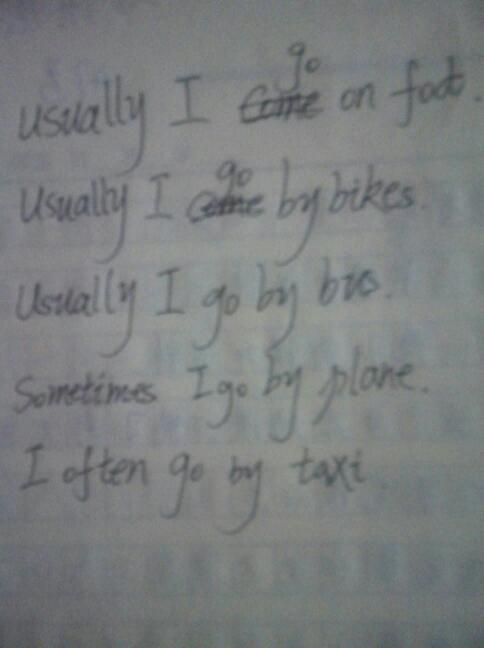 Usually I go on foot.
Usually I go by bikes.
Usually I go by bus.
Sometimes I go by plane.
I often go by taxi.